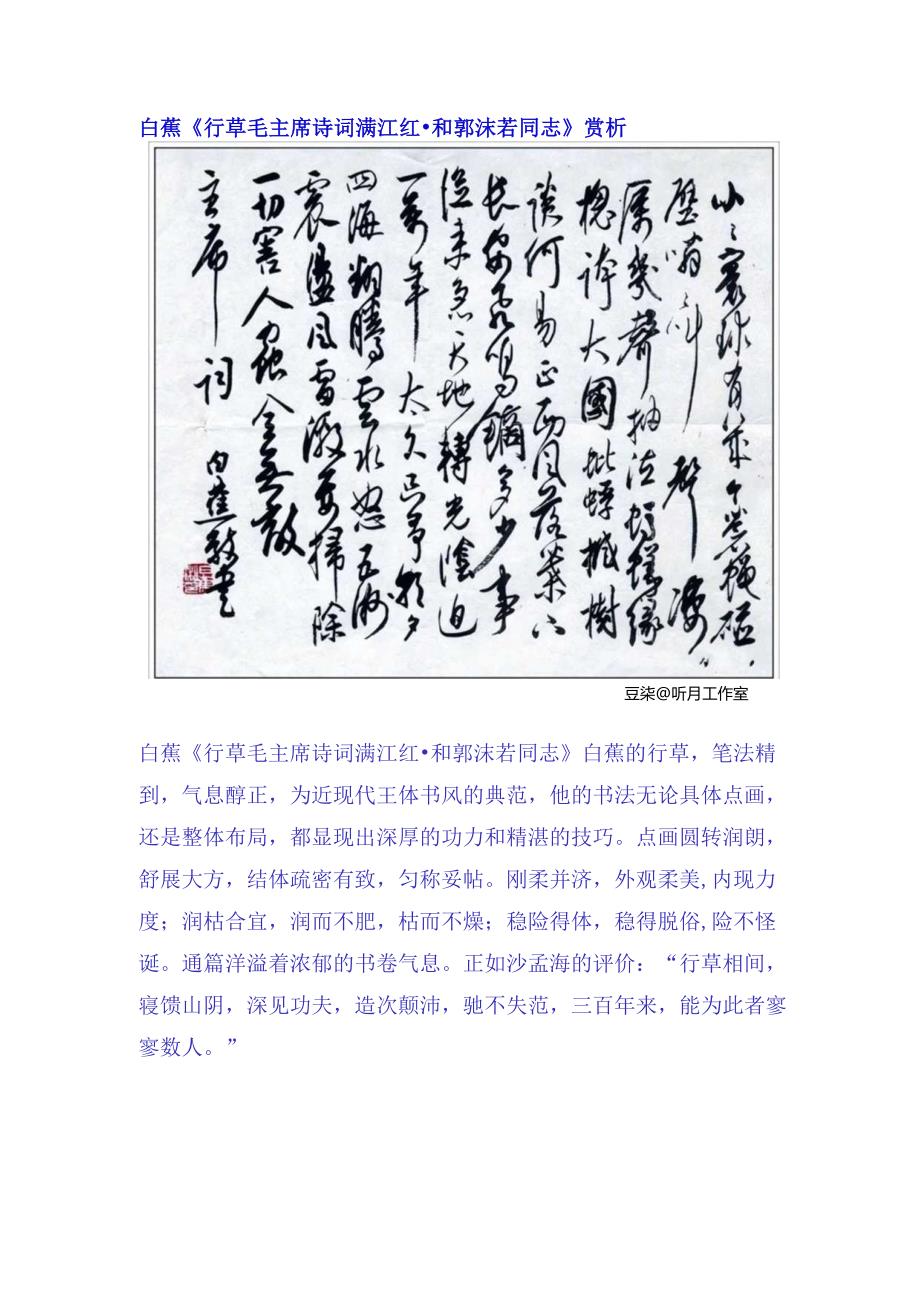 白蕉《行草毛主席诗词满江红•和郭沫若同志》赏析
小〻寰球有幾个蒼蠅碰
壁嗡〻叫聲凄
厲幾聲抽泣螞蟻緣
槐誇大國蚍蜉撼樹
談何易正西風落葉下
長安飛鳴鏑多少事
從来急天地轉光陰迫
一萬年太久只争朝夕
四海翻騰雲水怒五洲
震盪風雷激要掃除
一切害人蟲全無敵
主席詞 白蕉敬書
豆柒@听月工作室
白蕉《行草毛主席诗词满江红•和郭沫若同志》白蕉的行草，笔法精
到，气息醇正，为近现代王体书风的典范，他的书法无论具体点画，
还是整体布局，都显现出深厚的功力和精湛的技巧。点画圆转润朗，
舒展大方，结体疏密有致，匀称妥帖。刚柔并济，外观柔美,内现力
度；润枯合宜，润而不肥，枯而不燥；稳险得体，稳得脱俗,险不怪
诞。通篇洋溢着浓郁的书卷气息。正如沙孟海的评价：“行草相间，
寝馈山阴，深见功夫，造次颠沛，驰不失范，三百年来，能为此者寥
寥数人。”